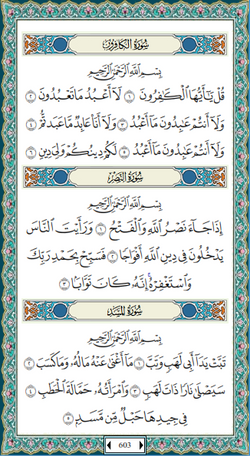 سُورَةُ الكَافِرُونَ
بِسْمِ اللَّهِ الرَّحْمَٰنِ الرَّحِيمِ
قُلْ يَٰٓأَيُّهَا ٱلْكَٰفِرُونَ ١ لَآ أَعْبُدُ مَا تَعْبُدُونَ ٢
وَلَآ أَنتُمْ عَٰبِدُونَ مَآ أَعْبُدُ ٣ وَلَآ أَنَا۠ عَابِدٌ مَّا عَبَدتُّمْ ٤
وَلَآ أَنتُمْ عَٰبِدُونَ مَآ أَعْبُدُ ٥ لَكُمْ دِينُكُمْ وَلِىَ دِينِ ٦
سُورَةُ النَّصْرِ
بِسْمِ اللَّهِ الرَّحْمَٰنِ الرَّحِيمِ
إِذَا جَآءَ نَصْرُ ٱللَّهِ وَٱلْفَتْحُ ١ وَرَأَيْتَ ٱلنَّاسَ
يَدْخُلُونَ فِى دِينِ ٱللَّهِ أَفْوَاجًا ٢ فَسَبِّحْ بِحَمْدِ رَبِّكَ
وَٱسْتَغْفِرْهُ إِنَّهُۥ كَانَ تَوَّابًۢا ٣
سُورَةُ المَسَدِ
بِسْمِ اللَّهِ الرَّحْمَٰنِ الرَّحِيمِ
تَبَّتْ يَدَآ أَبِى لَهَبٍ وَتَبَّ ١ مَآ أَغْنَىٰ عَنْهُ مَالُهُۥ وَمَا كَسَبَ ٢
سَيَصْلَىٰ نَارًا ذَاتَ لَهَبٍ ٣ وَٱمْرَأَتُهُۥ حَمَّالَةَ ٱلْحَطَبِ ٤
فِى جِيدِهَا حَبْلٌ مِّن مَّسَدٍۭ ٥
603